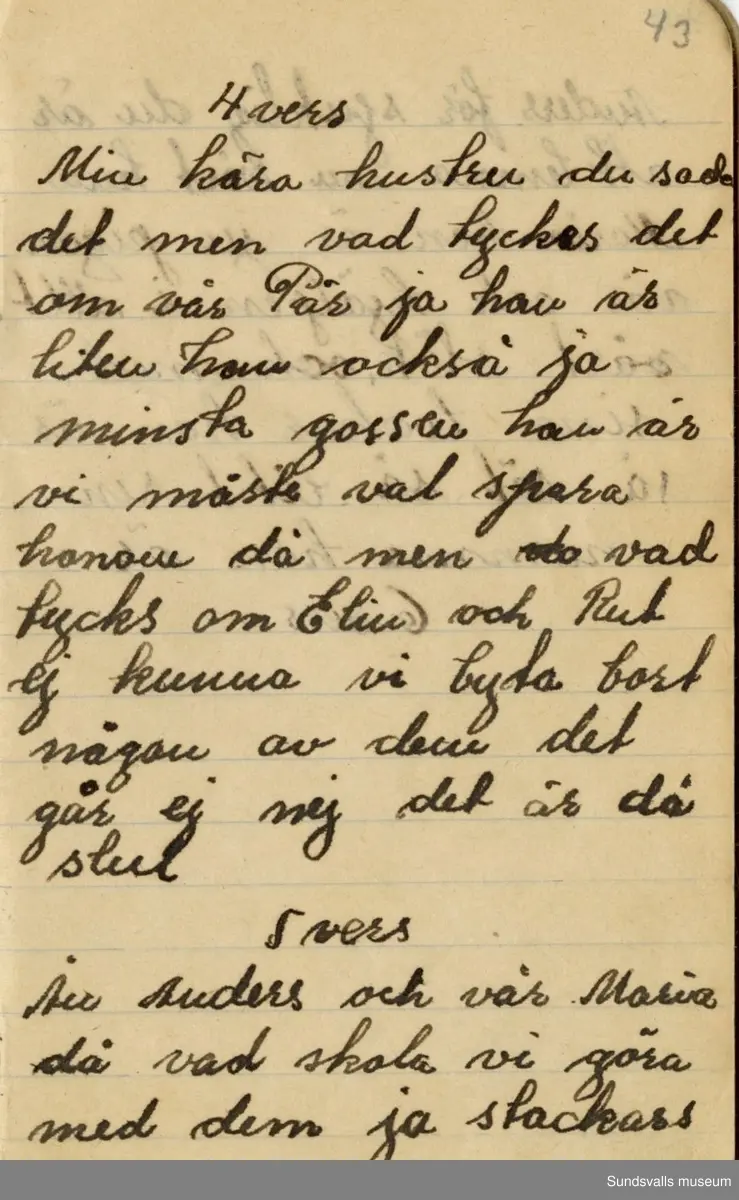 43
4 vers
Min kära hustru du sade
det men vad tyckes det
om vår Pär ja han är
liten han också ja
minsta gossen han är
vi måste val spara
honom då men vad
tycks om Elin och Rut
ej kunna vi byta bort
någon av dem det
går ej nej det är då
slut
5 vers
Än Anders och vår Maria
då vad skola vi göra
med dem ja stackars
Sundsvalls museum